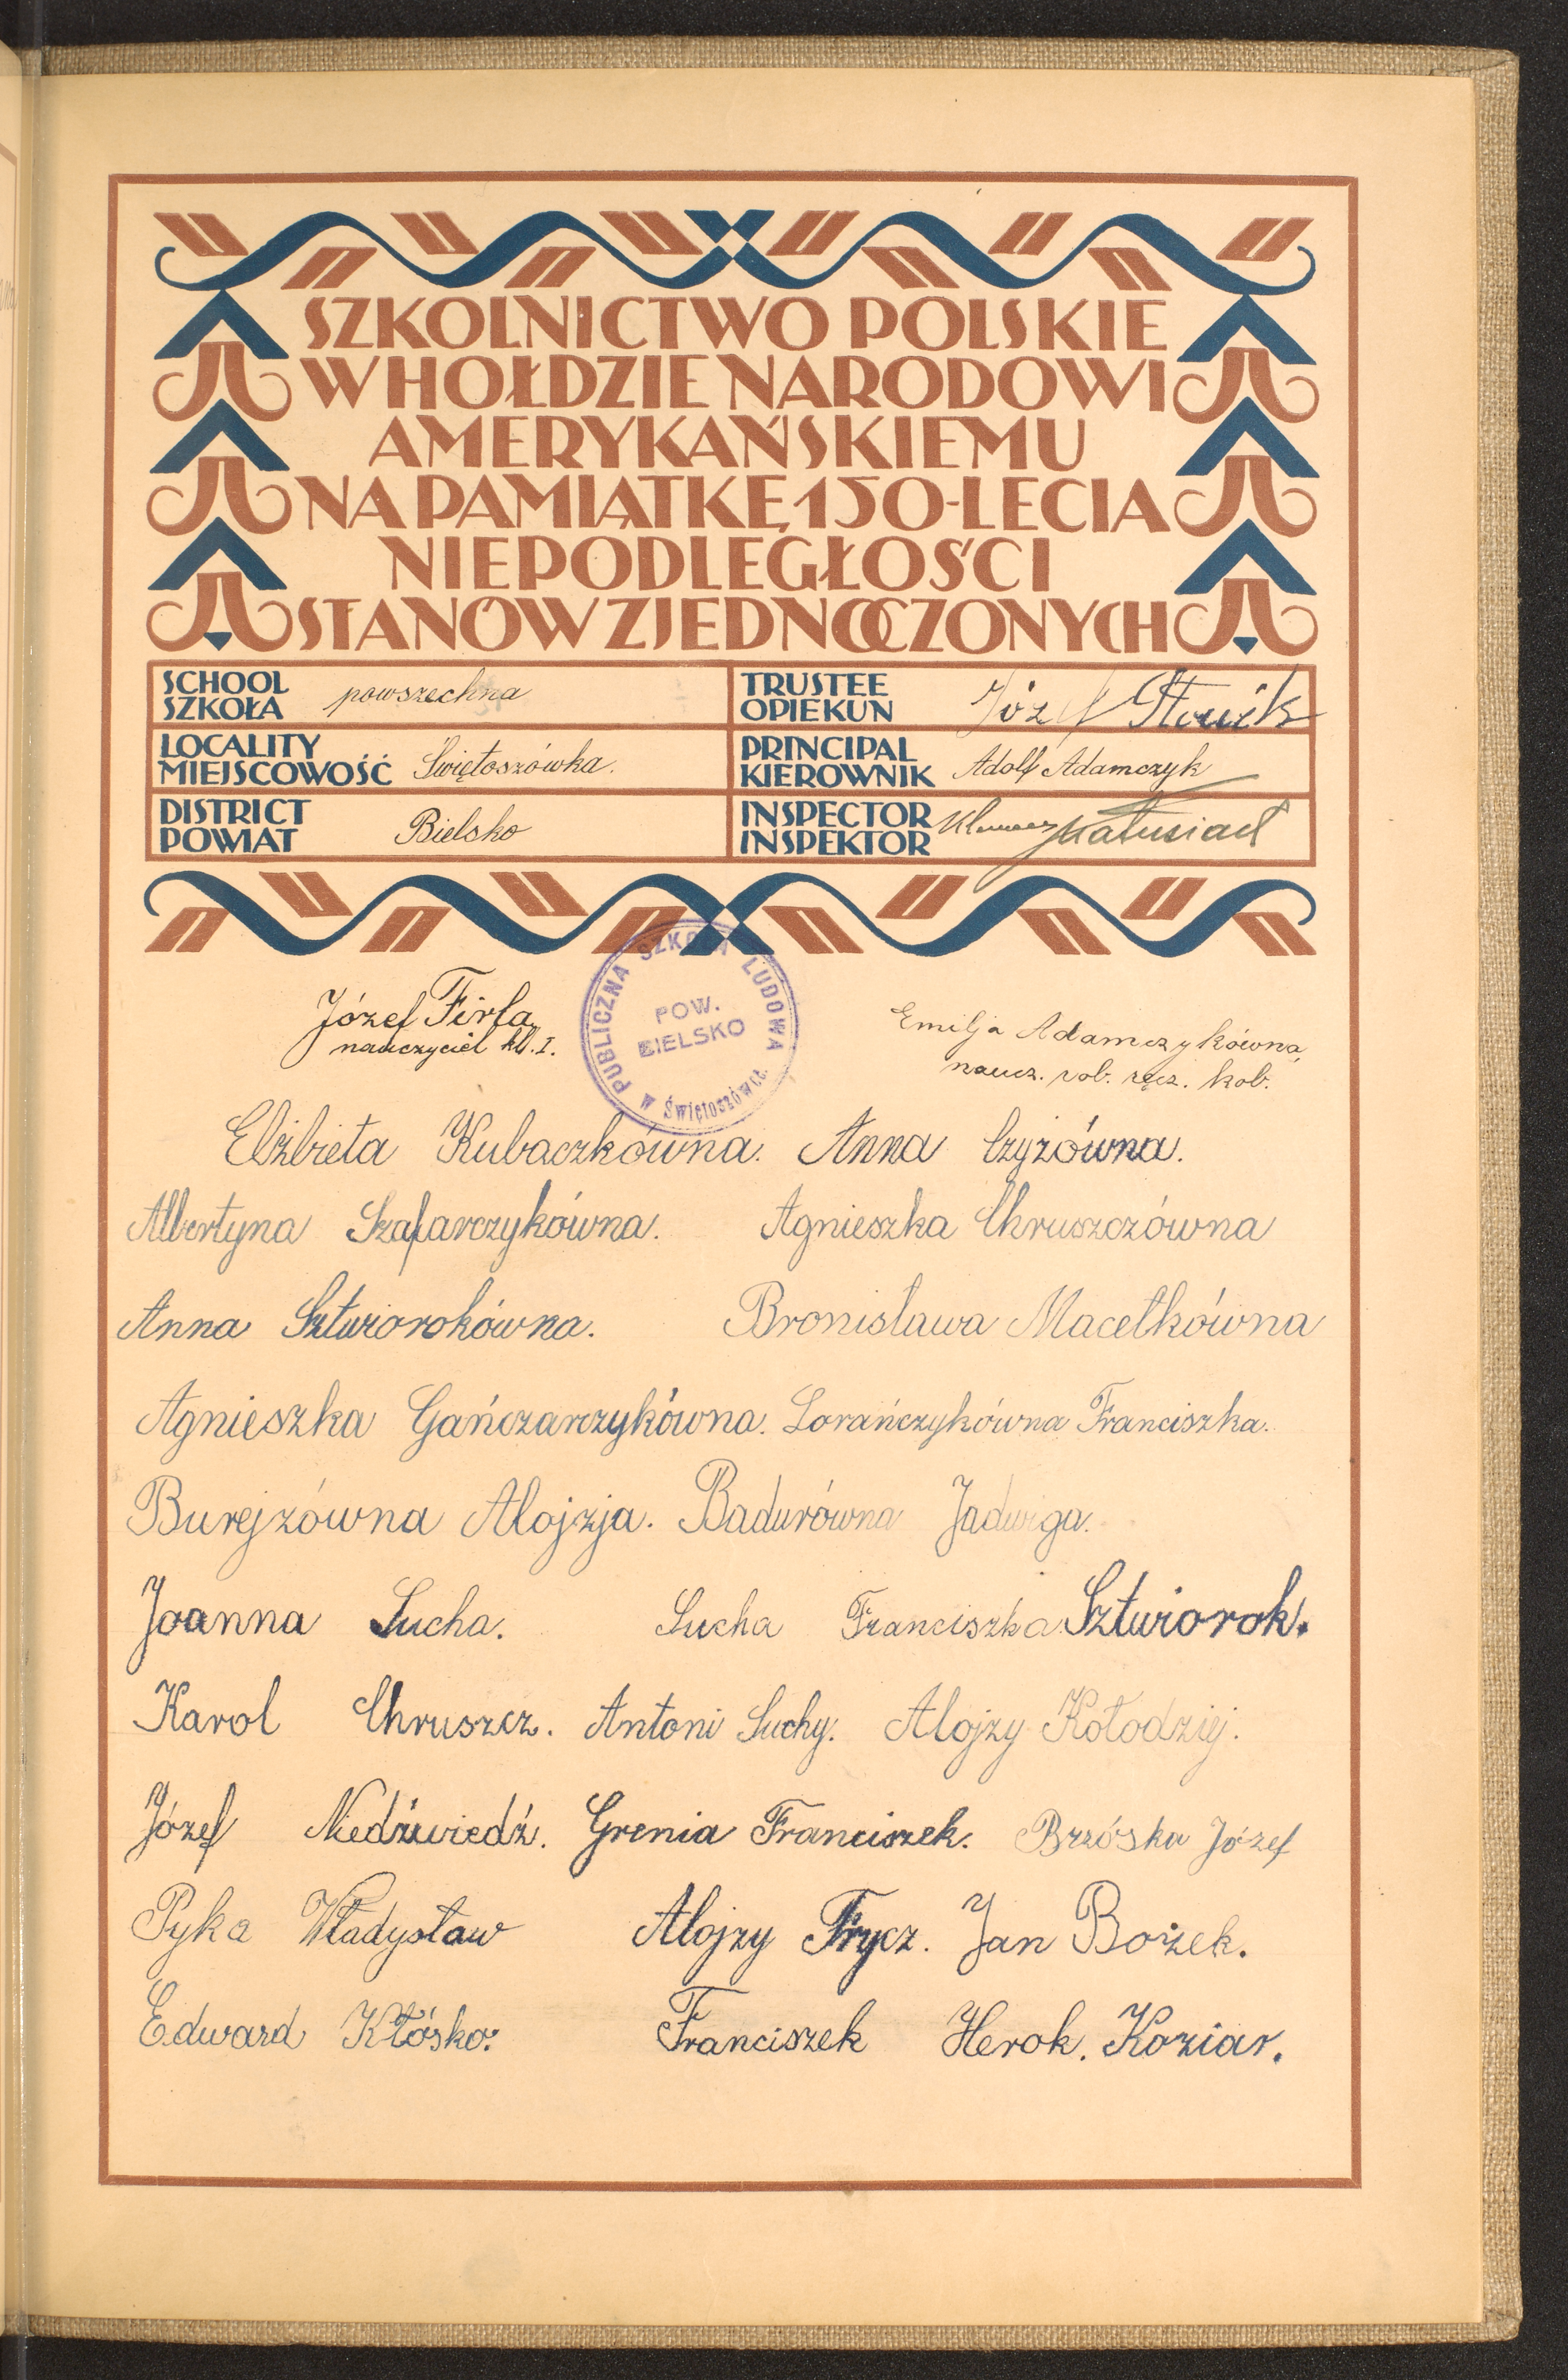 SZKOLNICTWO POLSKIE
W HOŁDZIE NARODOWI
AMERYKAŃSKIEMU
NA PAMIĄTKĘ 150-LECIA
NIEPODLEGŁOŚCI
STANÓW ZJEDNOCZONYCH
SCHOOL
SZKOŁA powszechna
TRUSTEE
OPIEKUN Józef
LOCALITY
MIEJSCOWOŚĆ Świętoszówka.
PRINCIPAL
KIEROWNIK Adolf Adamczyk
DISTRICT
POWIAT Bielsko
INSPECTOR
INSPEKTOR Klemens Matusiak
Józef Firla
nauczyciel kl. I.
PUBLICZNA SZKOŁA LUDOWA
w Świętoszówce.
POW.
BIELSKO
Emilja Adamczykówna,
naucz. rob. ręcz. kob.
Elżbieta Kubaczkówna. Anna Czyżówna.
Albertyna Szafarczykówna. Agnieszka Chruszczówna
Anna Sztwiorokówna. Bronisława Macełkówna
Agnieszka Gańczarczykówna. Lorańczykówna Franciszka.
Burejzówna Alojzja. Badurówna Jadwiga.
Joanna Sucha. Sucha Franciszka Sztwiorok.
Karol Chruszcz. Antoni Suchy. Alojzy Kołodziej.
Józef Niedźwiedź. Grenia Franciszek. Brzóska Józef
Pyka Władysław Alojzy Frycz. Jan Bożek.
Edward Kłósko. Franciszek Herok. Koziar.